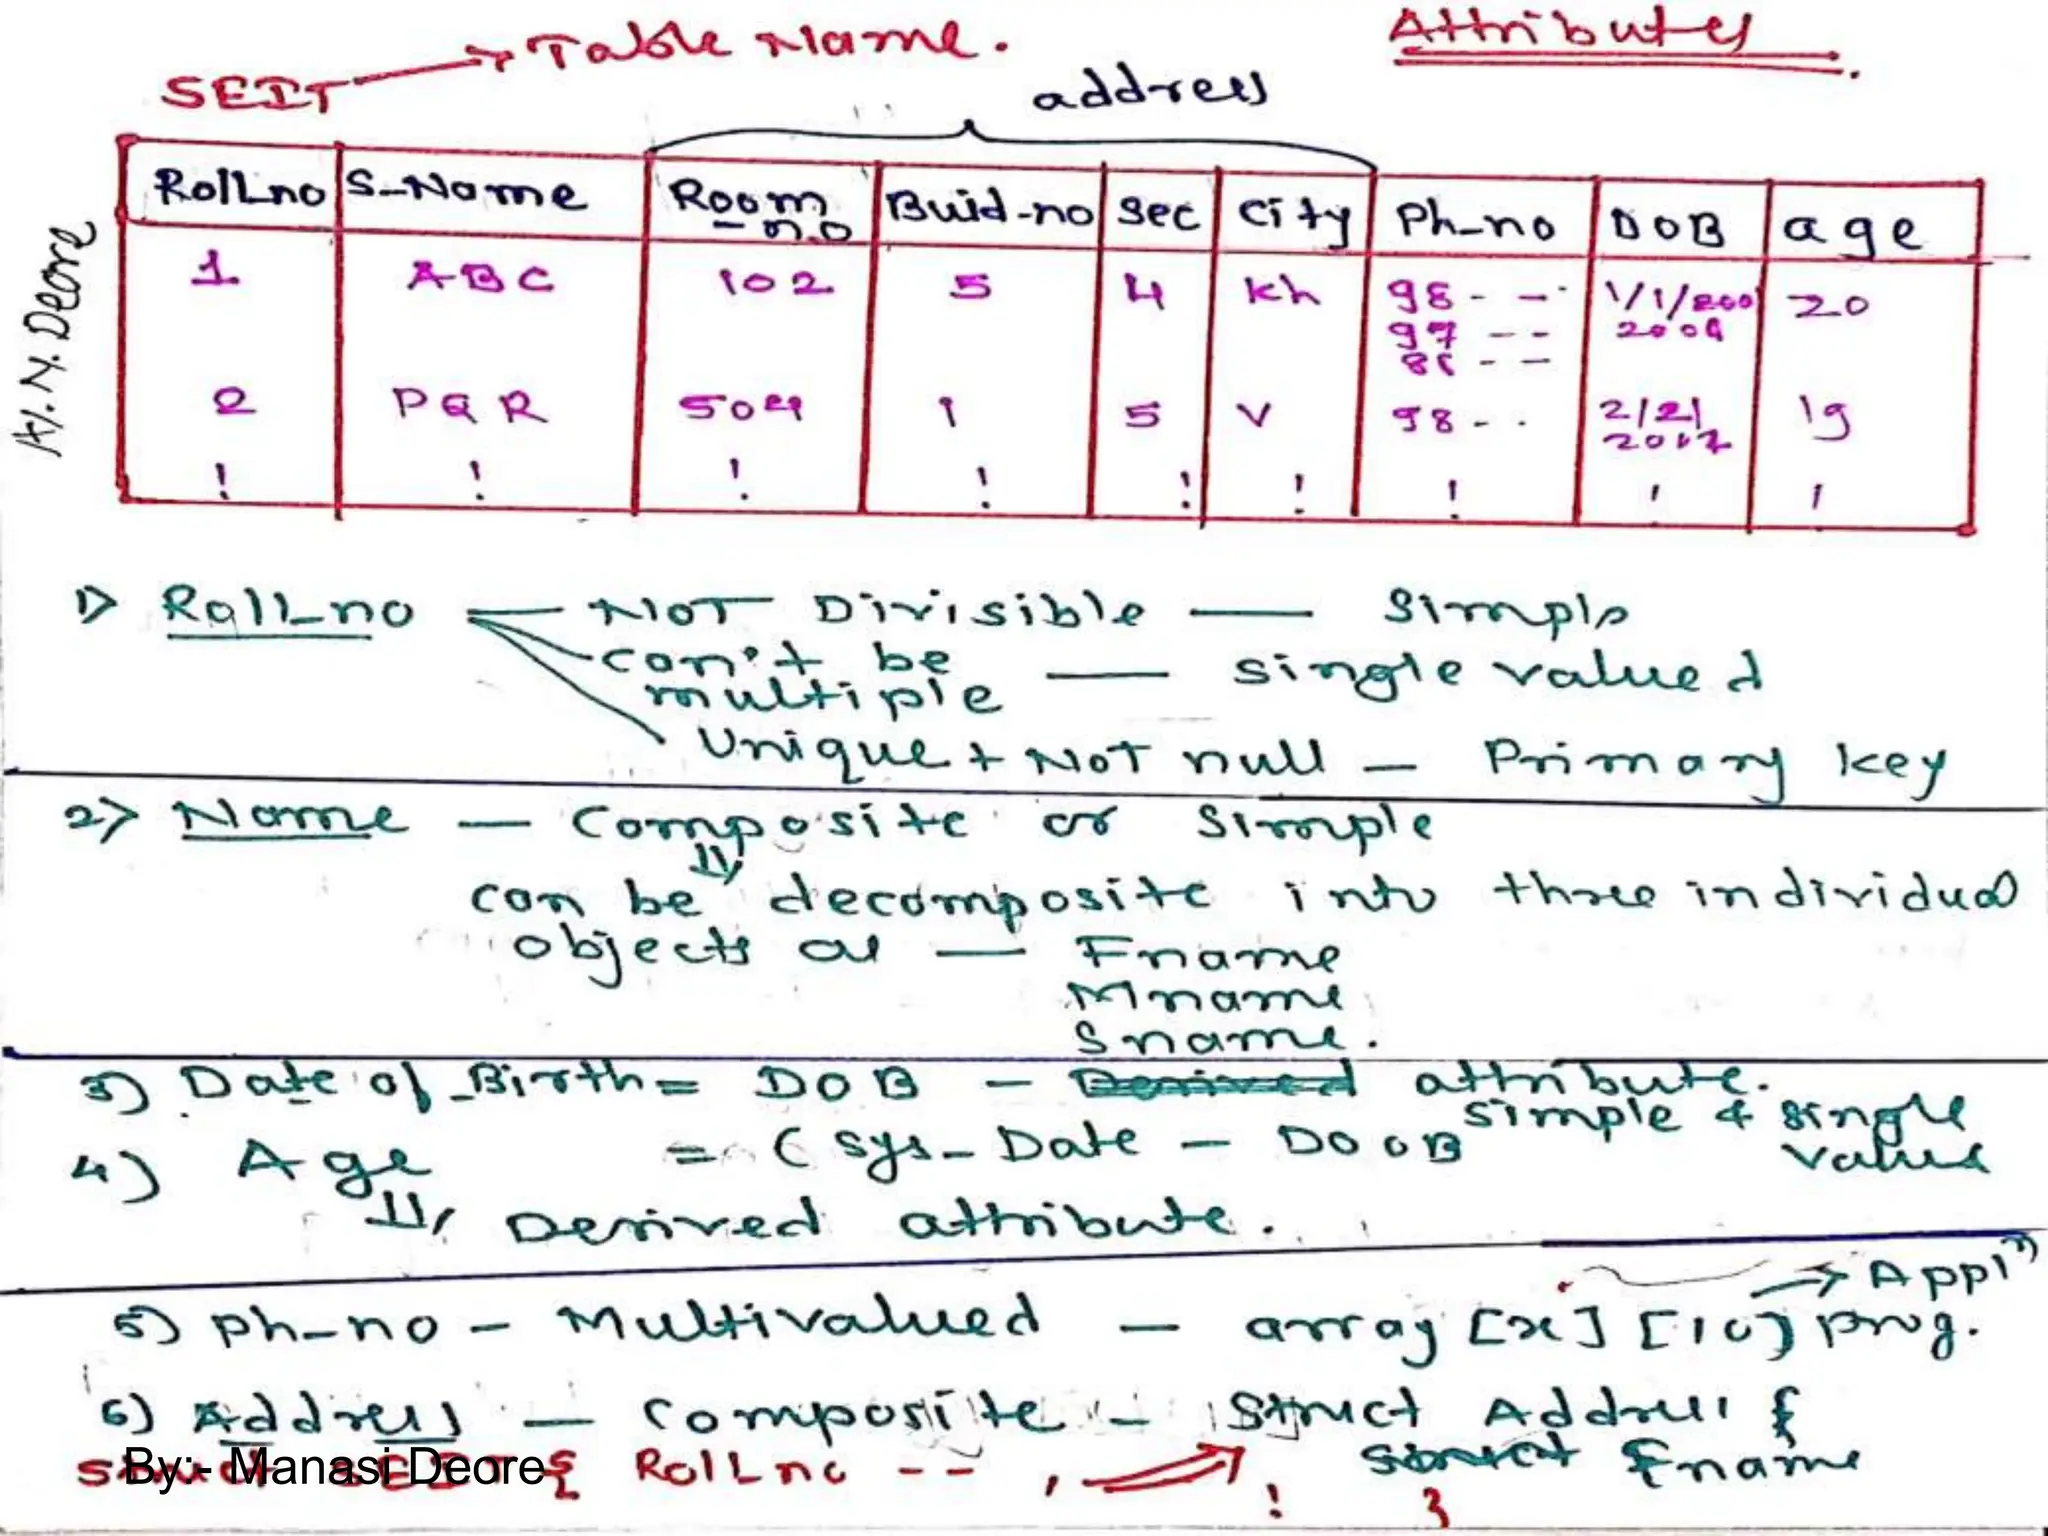 Attributes
SEIT → Table Name.
address
Roll_no S_Name Room_no Buid-no Sec City Ph_no DOB age
1 ABC 102 5 4 kh 98 - - 1/1/200 20
97 - - 2004
86 - -
2 PQR 504 1 5 V 98 - - 2/2/ 19
! ! ! ! ! ! ! ! !
M. N. Deore
1) Roll_no — NOT Divisible — Simple
can't be multiple — single valued
Unique + NOT null — Primary key
2) Name — Composite or Simple
can be decomposite into three individual
objects as — Fname
Mname
Sname.
3) Date of_Birth = DOB — Derived attribute.
simple & single valued
4) Age = (Sys_Date — DOOB
Derived attribute.
→ Appl n)
5) ph_no - Multivalued — array [x] [10] prog.
6) Address — Composite - Struct Address {
struct SEIT { RolLno - - , struct Fname
! }
By:- Manasi Deore